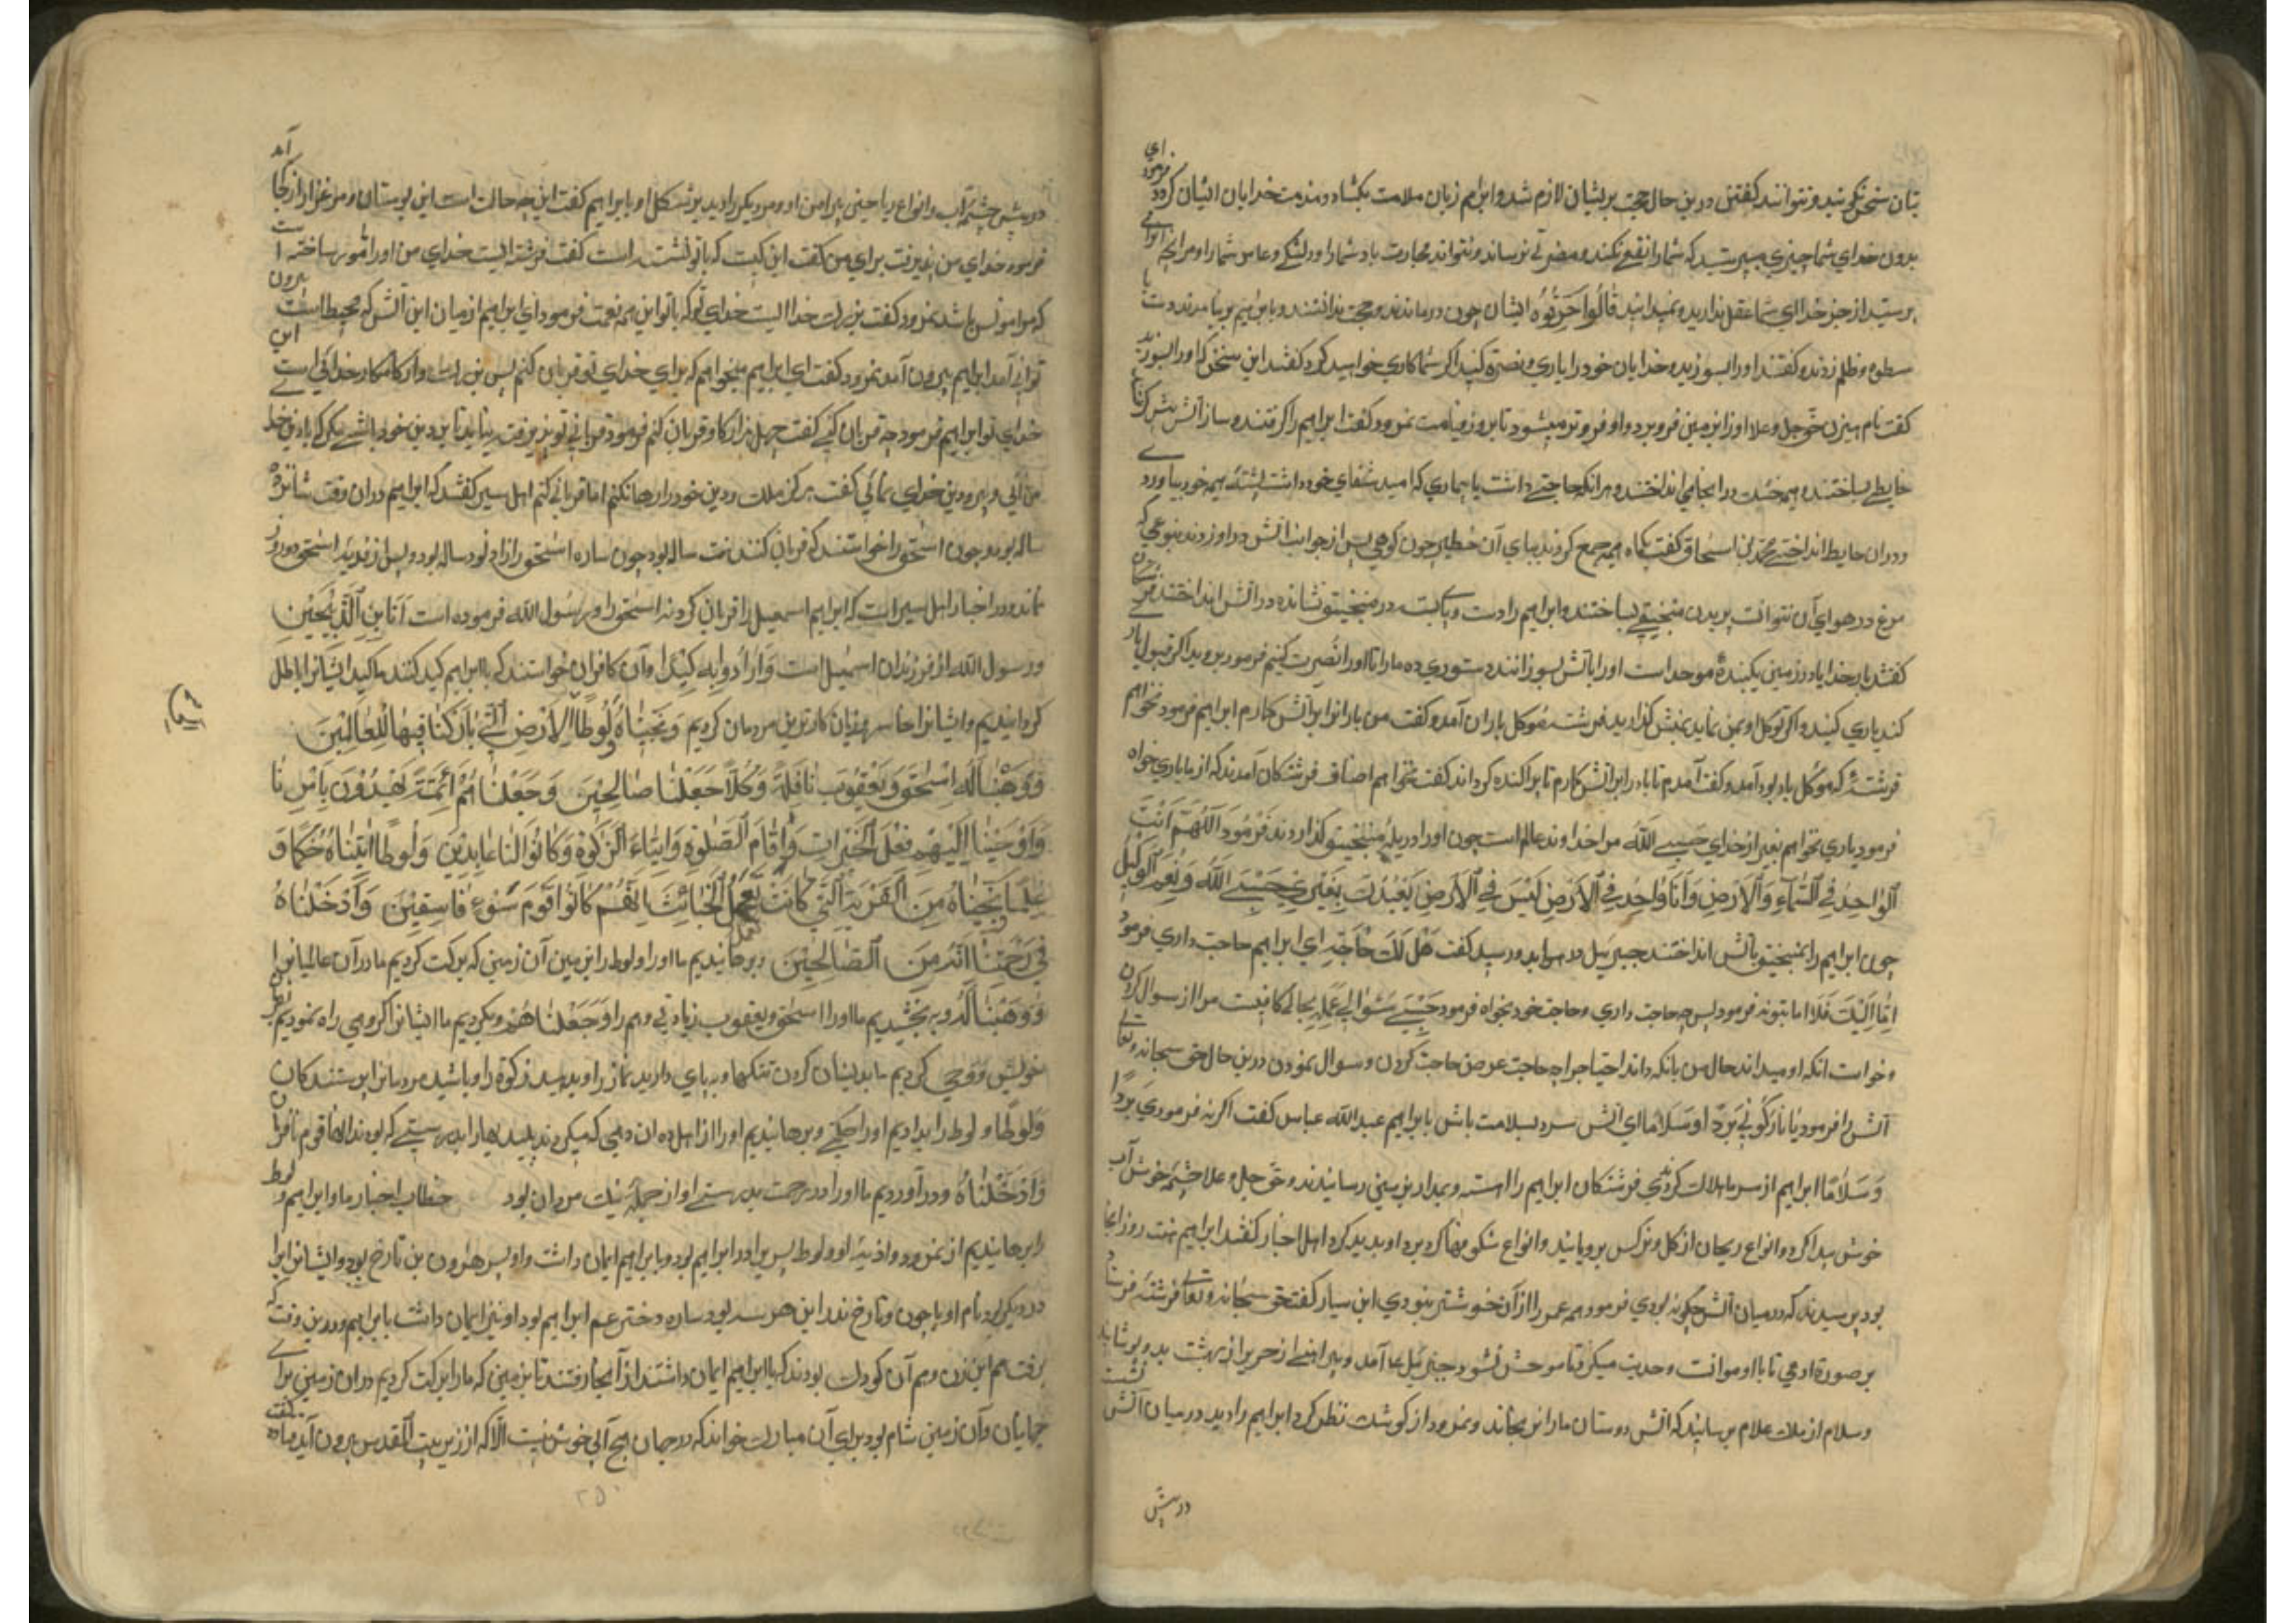 بتان سخن نکویند و نتوانند کفتن درین حال حجت بریشان لازم شد و ابرهیم زبان ملامت بکشاد و مذمت خدایان ایشان کرد و فرمود ای
بدون خدای شما چیزی میپرستید که شمارا نفع نکند و مضرتی نرساند و نتواند
پرستید از جز خدا ای شما عقل ندارید و نمیدانید قَالُوا حَرِّقُوهُ ایشان چون درماندند و حجت نداشتند و با برهیم بر نیامدند دست با
سطوه و ظلم زدند و کفتند او را بسوزید و خدایان خود را یاری و نصرة کنید اکر شما کاری خواهید کرد کفتند این سخن که او را بسوزید
کفت نام هیزن حق جل و علا او را بزمین فرو برد و او فروتر میشود تا بروز قیامت نمرود کفت ابراهیم را کرفتند و ساز آتش
حایطی بساختند و هیمه در آنجا می انداختند و هرانکه حاجتی داشت یا بیماری که امید شفای خود داشت پشته هیمه خود بیاورد
و در آن حایط انداختی محمد بن اسحاق کفت یکماه هیمه جمع کردند بپای آن حظیره چون کوهی پس از جوانب آتش در او زدند بنوعی که
مرغ در هوای آن نتوانست پریدن منجنیقی بساختند و ابراهیم را دست و پای بسته در منجنیق نشانده در آتش انداختند
کفتند بار خدایا در زمین یکبندهٔ موحد است او را بآتش بسوزانند دستوری ده ما را تا او را نصرت کنیم فرمود بروید اکر قبول یاری
کند یاری کنید و اکر توکل او بمن نماید بمنش کذارید فرشته موکل باران آمد و کفت من باران را بر آتش کمارم ابراهیم فرمود نخواهم
فرشتهٔ که موکل باد بود آمد و کفت آمدم تا باد را بر آتش کمارم تا پراکنده کرداند کفت نخواهم اصناف فرشتکان آمدند که از ما یاری خواه
فرمود یاری نخواهم بغیر از خدای حَسْبِیَ اللّٰه مرا خداوند عالم است چون او را در پلهٔ منجنیق کذاردند فرمود اَللّٰهُمَّ اَنْتَ
الْوَاحِدُ فِی السَّمَآءِ وَالْاَرْضِ وَاَنَا وَاحِدٌ فِی الْاَرْضِ لَیْسَ فِی الْاَرْضِ یَعْبُدُکَ بِغَیْرِی حَسْبِیَ اللّٰهُ وَنِعْمَ الْوَکِیلُ
چون ابراهیم را بمنجنیق بآتش انداختند جبرئیل در هوا بدو رسید کفت هَلْ لَکَ حَاجَةٌ ای ابراهیم حاجت داری فرمود
اَمَّا اِلَیْکَ فَلَا اما بتو نه فرمود پس چه حاجت داری و حاجت خود بخواه فرمود حَسْبِی سُؤَالِی عِلْمُهُ بِحَالِی کافیست مرا از سوال کردن
و خواست آنکه او میداند حال من بانکه داند احتیاج را چه حاجت عرض حاجت کردن و سوال نمودن درین حال حق سبحانه و تعالی
آتش را فرمود یَا نَارُ کُونِی بَرْدًا وَسَلَامًا ای آتش سرد بسلامت باش بابراهیم عبد الله عباس کفت اکر نه فرمودی بَرْدًا
وَسَلَامًا ابراهیم از سرما هلاک کردیدی فرشتکان ابراهیم را آهسته و بمدارا بزمین رسانیدند و حق جل و علا چشمه خوش آب
خوش پیدا کرد و انواع ریحان از کل و نرکس برویانید و انواع شکوفها کرد برد او پدید کرد اهل اخبار کفتند ابراهیم هفت روز آنجا
بود پرسیدند که در میان آتش چکونه بودی فرمود همه عمر را از آن خوشتر نبودی ابن سیار کفت حق سبحانه و تعالی فرشتهٔ فرستاد
بر صورة ادمی تا با او موانست و حدیث میکرد تا موحش نشود و جبرئیل عا آمد و پیراهنی از حریر از بهشت بدو پوشانید
و سلام از ملک علام برسانید که آتش دوستان ما را نرنجاند و نمرود از کوشک نظر کرد ابراهیم را دید در میان آتش نشسته
در پیش
در پیش چشمه آب و انواع ریاحین پیرامن او و مرد دیکر را دید بر شکل او بابراهیم کفت این چه حالت است این بوستان و مرغزار از کجا آمد
فرمود خدای من پذیرفت برای من کفت این کیست که با تو نشسته است کفت فرشته ایست خدای من او را مامور ساخته است
که مرا مونس باشد نمرود کفت بزرک خدا ایست خدای تو که با تو این همه نعمت فرمود ای ابراهیم از میان این آتش که محیط است بیرون
توانی آمد ابراهیم بیرون آمد نمرود کفت ای ابراهیم میخواهم که برای خدای تو قربان کنم پس بزرک وار کامکار خدائی است این
خدای تو ابراهیم فرمود چه قربان کنی کفت چهل هزار کاو قربان کنم فرمود قربانی تو نپذیرفت نیاید تا بر دین خود باشی مکر که با دین خدا
من آئی و پیرو دین خدای نمائی کفت هرکز ملک و دین خود را رها نکنم اما قربانی کنم اهل سیر کفتند که ابراهیم در آن وقت شانزده
ساله بود و چون اسحق را خواستند که قربان کنند هفت ساله بود چون ساره اسحق را زاد نود ساله بود و پس از فدیه اسحق دو روز
نماند و در اخبار اهل سیر است که ابراهیم اسمعیل را قربان کرد نه اسحق را و رسول الله فرموده است اَنَا ابْنُ الذَّبِیحَیْنِ
و رسول الله از فرزندان اسمعیل است وَاَرَادُوا بِهِ کَیْدًا و آن کافران خواستند که با ابراهیم کید کنند ما کید ایشان را باطل
کردانیدیم و ایشان را خاسر و زیان کارترین مردمان کردیم وَنَجَّیْنَاهُ وَلُوطًا اِلَی الْاَرْضِ الَّتِی بَارَکْنَا فِیهَا لِلْعَالَمِینَ
وَوَهَبْنَا لَهُ اِسْحٰقَ وَیَعْقُوبَ نَافِلَةً وَکُلًّا جَعَلْنَا صَالِحِینَ وَجَعَلْنَاهُمْ اَئِمَّةً یَهْدُونَ بِاَمْرِنَا
وَاَوْحَیْنَا اِلَیْهِمْ فِعْلَ الْخَیْرَاتِ وَاِقَامَ الصَّلٰوةِ وَاِیتَاءَ الزَّکٰوةِ وَکَانُوا لَنَا عَابِدِینَ وَلُوطًا اٰتَیْنَاهُ حُکْمًا وَ
عِلْمًا وَنَجَّیْنَاهُ مِنَ الْقَرْیَةِ الَّتِی کَانَتْ تَعْمَلُ الْخَبَائِثَ اِنَّهُمْ کَانُوا قَوْمَ سَوْءٍ فَاسِقِینَ وَاَدْخَلْنَاهُ
فِی رَحْمَتِنَا اِنَّهُ مِنَ الصَّالِحِینَ و برهانیدیم ما او را و لوط را بزمین آن زمینی که برکت کردیم ما در آن عالمیان را
وَوَهَبْنَا لَهُ و ببخشیدیم ما او را اسحق و یعقوب زیادتی و هم را وَجَعَلْنَاهُمْ و بکردیم ما ایشان را کروهی راه نمودیم بفرمان
خویش و وحی کردیم ما بدیشان کردن نیکیها و بپای دارید نماز را و بدهید زکوة را و باشید مرما را پرستندکان
وَلُوطًا و لوط را بدادیم او را حکمی و برهانیدیم او را از اهل ده آن دهی که میکردند پلیدیها را بدرستی که بودند آنها قوم نافرمان
وَاَدْخَلْنَاهُ و در آوردیم ما او را در رحمت بدرستی او از جمله نیک مردان بود خطاب اخبار ما و ابراهیم و لوط
را برهانیدیم از نمرود و اذیت او و لوط پسر برادر ابراهیم بود و با ابراهیم ایمان داشت و او پسر هرون بن تارخ بود و ایشان را برادر
دیکر بود نام او ناحور و تارخ پدر این هرسه بود و ساره دختر عم ابراهیم بود او نیز ایمان داشت بابراهیم و درین وقت که
برفت هم این زن و هم آن کودک بودند که با ابراهیم ایمان داشتند از آنجا رفتند تا بزمینی که ما برکت کردیم در آن زمین برای
جهانیان و آن زمین شام بود برای آن مبارک خواند که در جهان هیچ آبی خوش نیست الا که از زیر بیت المقدس بیرون آید